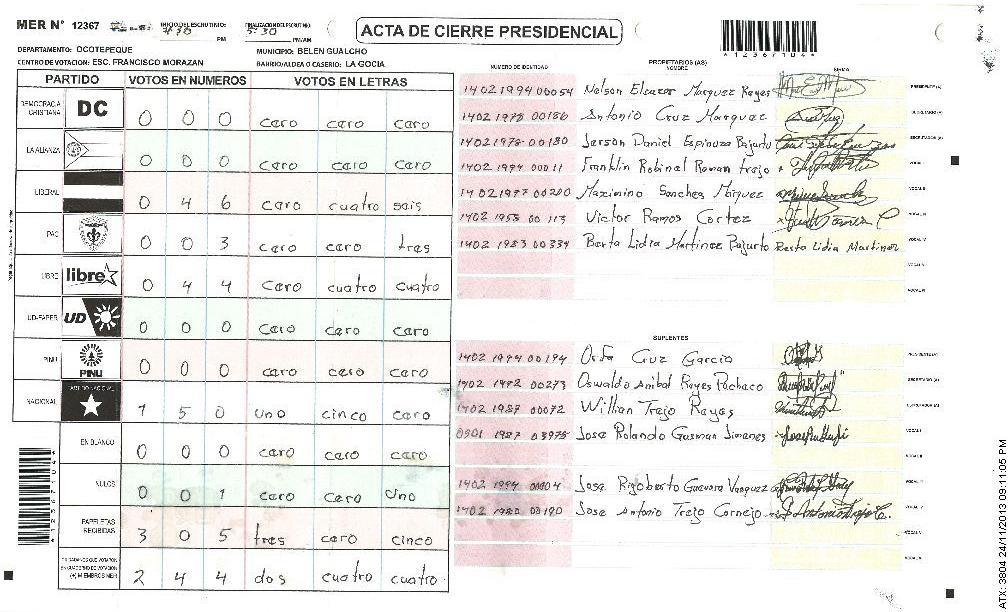 MER Nº 12367 INICIO DEL ESCRUTINIO: FINALIZACION DEL ESCRUTINIO: 5:30 PM PM/AM
ACTA DE CIERRE PRESIDENCIAL
*1236/104*
DEPARTAMENTO: OCOTEPEQUE MUNICIPIO: BELEN GUALCHO
CENTRO DE VOTACION: ESC. FRANCISCO MORAZAN BARRIO/ALDEA O CASERIO: LA GOCIA
PARTIDO VOTOS EN NUMEROS VOTOS EN LETRAS
DEMOCRACIA CRISTIANA DC 0 0 0 cero cero cero
LA ALIANZA 0 0 0 cero cero cero
LIBERAL 0 4 6 cero cuatro seis
PAC 0 0 3 cero cero tres
LIBRE libre 0 4 4 cero cuatro cuatro
UD-FAPER UD 0 0 0 cero cero cero
PINU PINU 0 0 0 cero cero cero
NACIONAL PARTIDO NACIONAL 1 5 0 uno cinco cero
EN BLANCO 0 0 0 cero cero cero
NULOS 0 0 1 cero cero uno
PAPELETAS RECIBIDAS 3 0 5 tres cero cinco
CIUDADANOS QUE VOTARON EN CUADERNO DE VOTACION (+) MIEMBROS MER 2 4 4 dos cuatro cuatro
NUMERO DE IDENTIDAD PROPIETARIOS (AS) NOMBRE FIRMA
1402 1994 00054 Nelson Eleazar Marquez Reyes PRESIDENTE (A)
1402 1978 00186 Antonio Cruz Marquez SECRETARIO (A)
1402 1978 00180 Jerson Daniel Espinoza Pajurto ESCRUTADOR (A)
1402 1994 00011 Franklin Robinel Roman trejo VOCAL I
1402 1977 00200 Maximino Sanchez Marquez VOCAL II
1402 1958 00 113 Victor Ramos Cortez VOCAL III
1402 1983 00334 Berta Lidia Martinez Pajurto Berta Lidia Martinez VOCAL IV
VOCAL V
VOCAL VI
SUPLENTES
1402 1994 00194 Orfa Cruz Garcia PRESIDENTE (A)
1402 1972 00273 Oswaldo Anibal Reyes Pacheco SECRETARIO (A)
1402 1987 00072 Willian Trejo Reyes ESCRUTADOR (A)
0901 1987 03975 Jose Rolando Gusman Jimenes VOCAL I
VOCAL II
1402 1994 00004 Jose Rigoberto Guevara Vasquez
1402 1980 00190 Jose Antonio Trejo Cornejo J. Antonio Trejo C.
VOCAL V
VOCAL VI
ATX: 3804 24/11/2013 09:11:05 PM